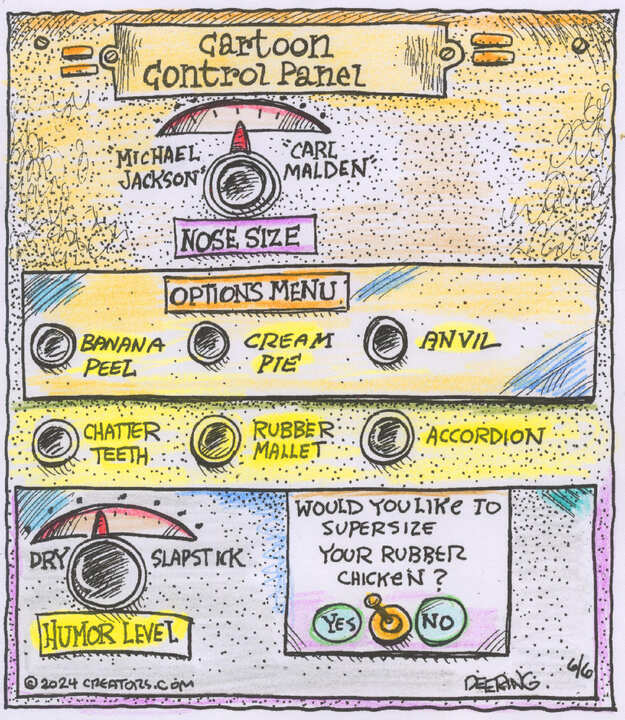 Cartoon
Control Panel
"MICHAEL
JACKSON"
"CARL
MALDEN"
NOSE SIZE
OPTIONS MENU
BANANA
PEEL
CREAM
PIE
ANVIL
CHATTER
TEETH
RUBBER
MALLET
ACCORDION
DRY
SLAPSTICK
HUMOR LEVEL
WOULD YOU LIKE TO
SUPERSIZE
YOUR RUBBER
CHICKEN?
YES
NO
© 2024 CREATORS.COM
DEERING.
6/6